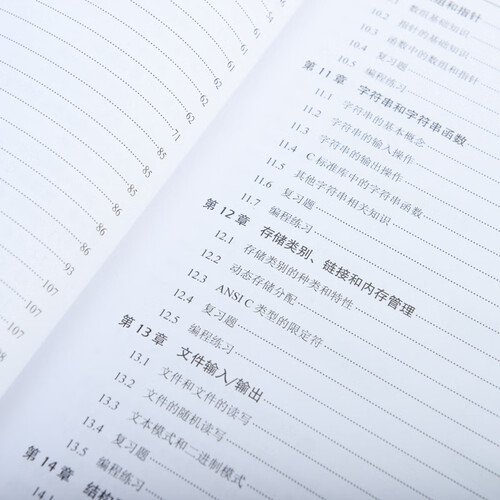 61
61
62
62
62
71
85
85
85
86
86
86
93
107
107
107
10.1 数组基础知识
10.2 指针的基础知识
10.3 函数中的数组和指针
10.4 复习题
10.5 编程练习
第 11 章 字符串和字符串函数
11.1 字符串的基本概念
11.2 字符串的输入操作
11.3 字符串的输出操作
11.4 C 标准库中的字符串函数
11.5 其他字符串相关知识
11.6 复习题
11.7 编程练习
第 12 章 存储类别、链接和内存管理
12.1 存储类别的种类和特性
12.2 动态存储分配
12.3 ANSI C 类型的限定符
12.4 复习题
12.5 编程练习
第 13 章 文件输入/输出
13.1 文件和文件的读写
13.2 文件的随机读写
13.3 文本模式和二进制模式
13.4 复习题
13.5 编程练习
第 14 章 结构
14.1